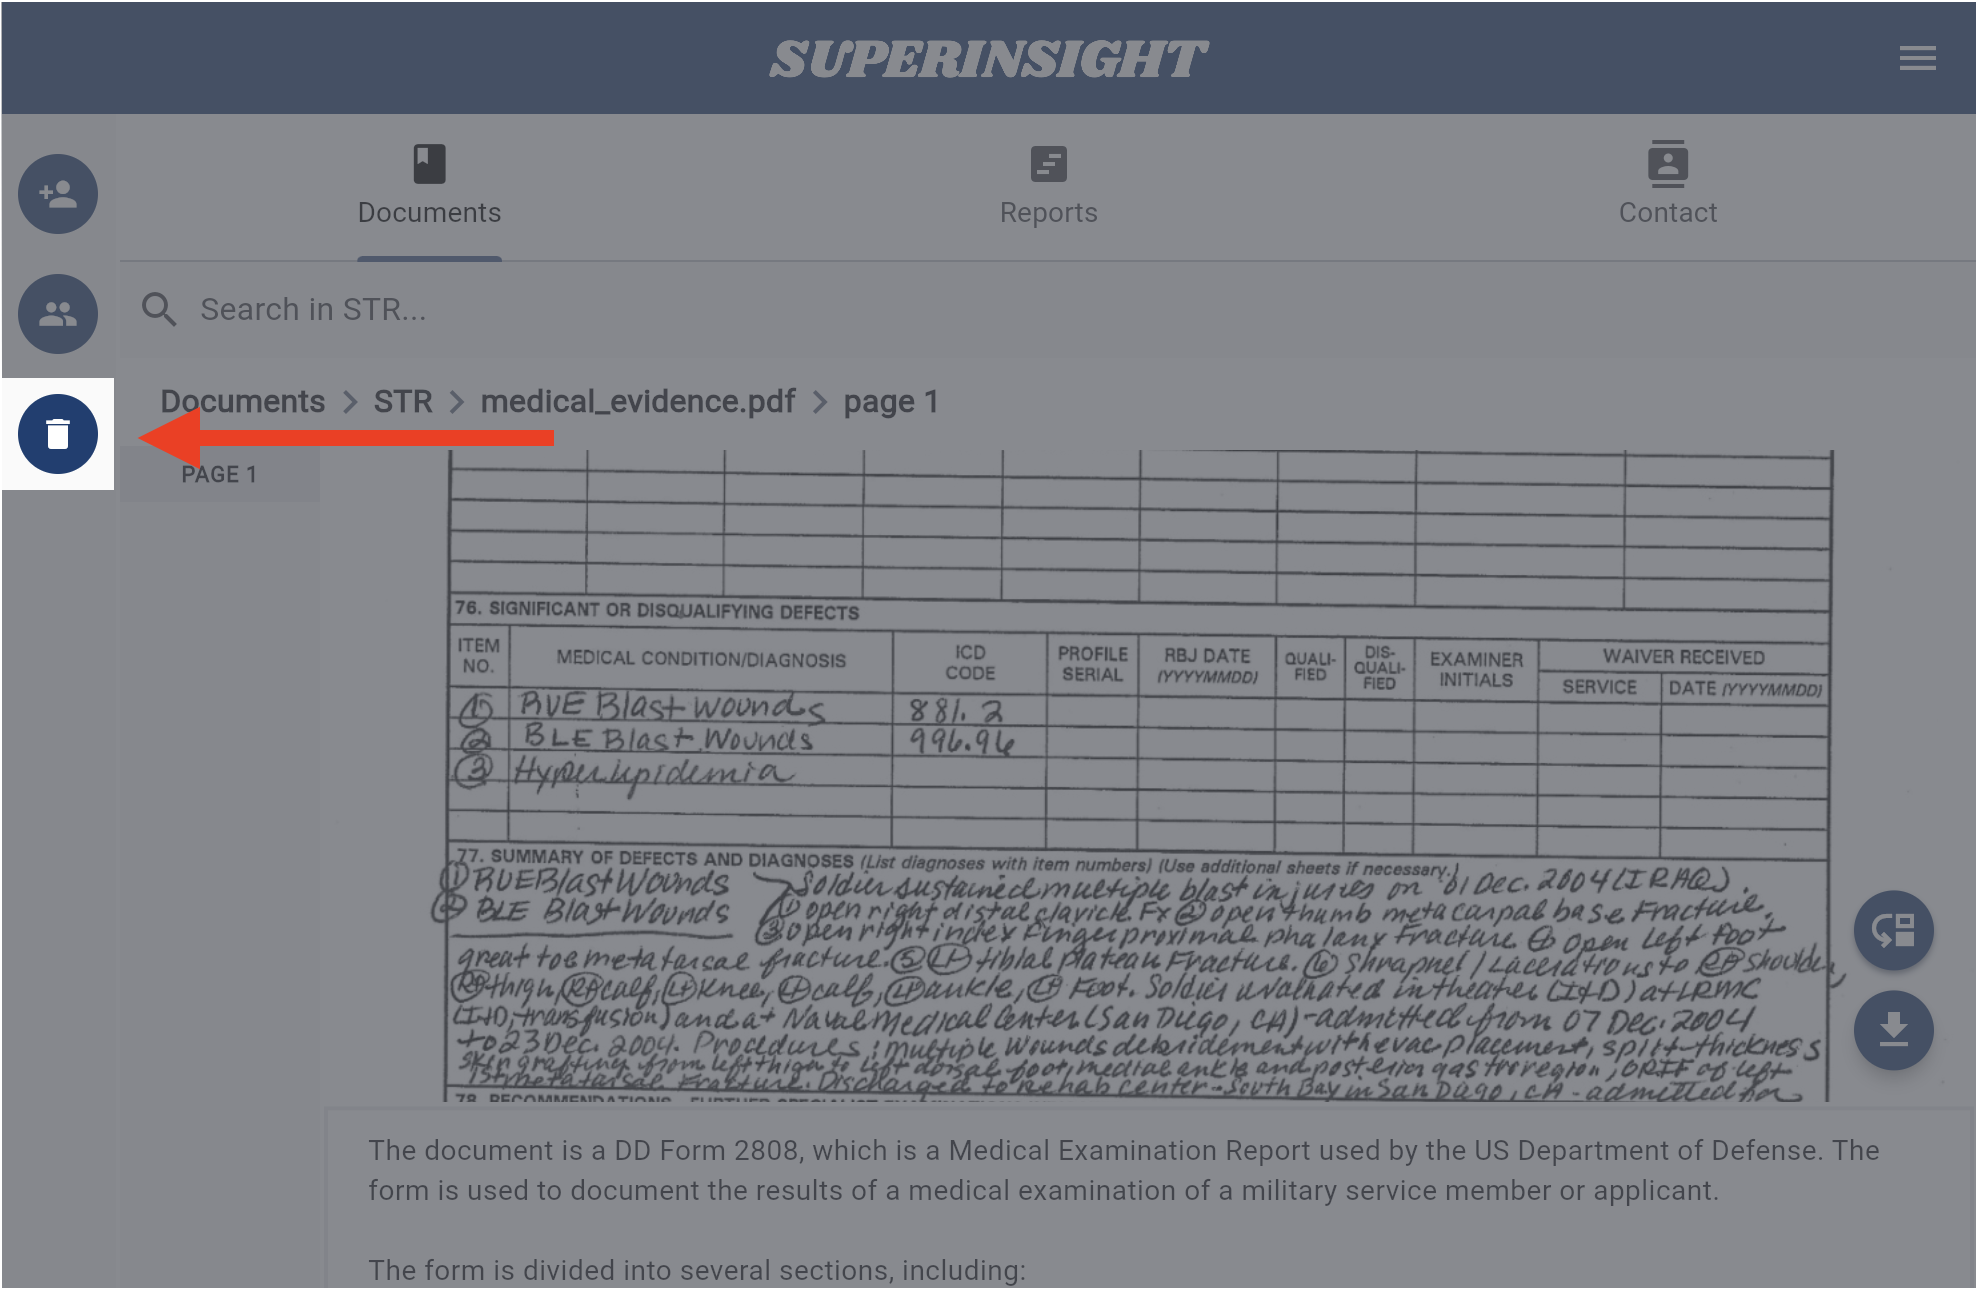 SUPERINSIGHT
Documents
Reports
Contact
Search in STR...
Documents > STR > medical_evidence.pdf > page 1
PAGE 1
76. SIGNIFICANT OR DISQUALIFYING DEFECTS
ITEM NO.
MEDICAL CONDITION/DIAGNOSIS
ICD CODE
PROFILE SERIAL
RBJ DATE (YYYYMMDD)
QUALI-FIED
DIS-QUALI-FIED
EXAMINER INITIALS
WAIVER RECEIVED
SERVICE
DATE (YYYYMMDD)
① RUE Blast wounds 881.2
② BLE Blast Wounds 996.96
③ Hyperlipidemia
77. SUMMARY OF DEFECTS AND DIAGNOSES (List diagnoses with item numbers) (Use additional sheets if necessary.)
① RUE Blast Wounds
② BLE Blast Wounds
Soldier sustained multiple blast injuries on 01 Dec. 2004 (IRAQ).
① open right distal clavicle Fx ② open thumb metacarpal base Fracture.
③ open right index finger proximal phalanx Fracture ④ open left foot
great toe metatarsal fracture. ⑤ LT tibial plateau Fracture. ⑥ Shrapnel / Lacerations to RT shoulder,
RT thigh, RT calf, LT knee, LT calf, LT ankle, LT Foot. Soldier evaluated in theater (I+D) at LRMC
(I+D, transfusion) and at Naval Medical Center (San Diego, CA) - admitted from 07 Dec. 2004
to 23 Dec. 2004. Procedures: multiple wounds debridement with evac placement, split-thickness
skin grafting from left thigh to left dorsal foot, medial ankle and posterior gastroc region, ORIF of left
1st metatarsal Fracture. Discharged to rehab center - South Bay in San Diego, CA - admitted for
78. RECOMMENDATIONS - FURTHER SPECIALIST
The document is a DD Form 2808, which is a Medical Examination Report used by the US Department of Defense. The
form is used to document the results of a medical examination of a military service member or applicant.
The form is divided into several sections, including: